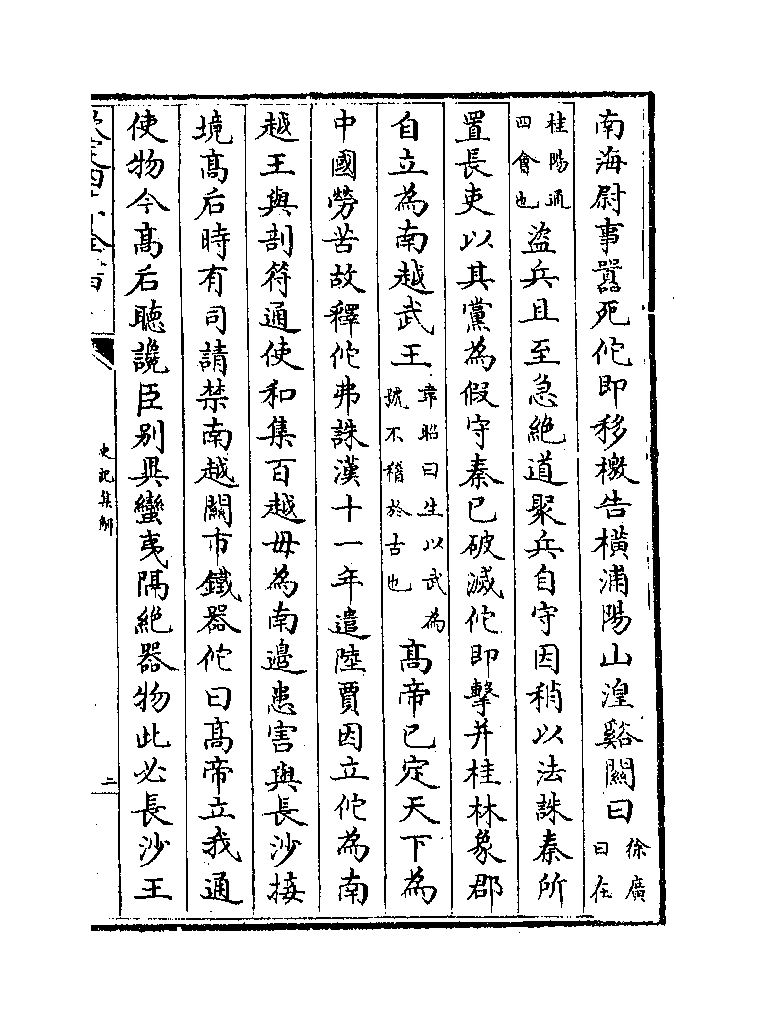 南海尉事囂死佗即移檄告橫浦陽山湟谿關曰徐廣曰在
桂陽通四會也盜兵且至急絶道聚兵自守因稍以法誅秦所
置長吏以其黨為假守秦已破滅佗即擊并桂林象郡
自立為南越武王韋昭曰生以武為號不稽於古也高帝已定天下為
中國勞苦故釋佗弗誅漢十一年遣陸賈因立佗為南
越王與剖符通使和集百越毋為南邊患害與長沙接
境髙后時有司請禁南越關市鐵器佗曰髙帝立我通
使物今髙后聽讒臣别異蠻夷隔絶器物此必長沙王
史記集解
二